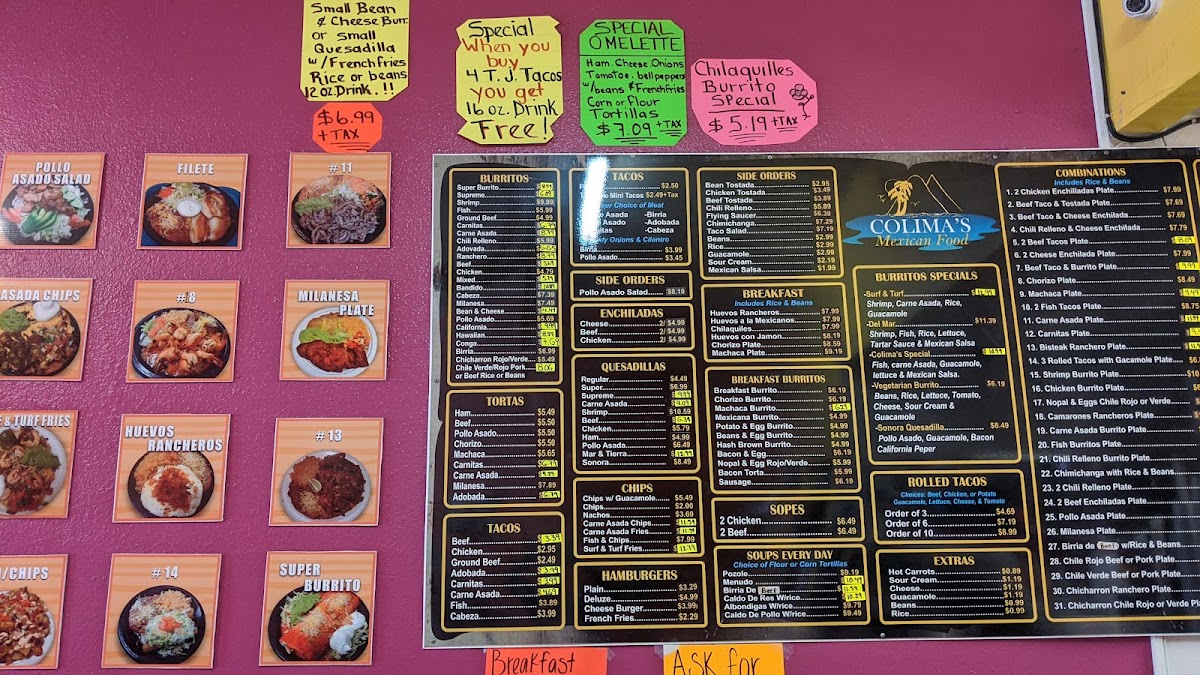 Small Bean
& Cheese Burr.
or small
Quesadilla
w/ French fries
Rice or beans
12 oz. Drink. !!
$6.99
+ TAX
Special
When you
buy
4 T.J. Tacos
you get
16 oz. Drink
Free!
SPECIAL
OMELETTE
Ham. Cheese. Onions
Tomatoe. bell peppers
w/beans & Frenchfries
Corn or flour
Tortillas
$7.09 +TAX
Chilaquilles
Burrito
Special
$5.19 +TAX
POLLO
ASADO SALAD
FILETE
#11
ASADA CHIPS
#8
MILANESA
PLATE
& TURF FRIES
HUEVOS
RANCHEROS
#13
/CHIPS
#14
SUPER
BURRITO
BURRITOS
Super Burrito
Supreme
Shrimp $9.99
Fish $5.99
Ground Beef $4.99
Carnitas
Carne Asada
Chili Relleno $5.99
Adovada
Ranchero
Beef
Chicken $4.79
Mixed
Bandido
Cabeza $7.39
Milanesa $7.49
Bean & Cheese
Pollo Asado $5.69
California
Hawaiian
Conga
Birria $6.99
Chicharron Rojo/Verde $5.49
Chile Verde/Rojo Pork
or Beef Rice or Beans
TORTAS
Ham $5.49
Beef $5.50
Pollo Asado $5.50
Chorizo $5.50
Machaca $5.65
Carnitas
Carne Asada
Milanesa $7.89
Adobada
TACOS
Beef 3.39
Chicken $2.95
Ground Beef $2.49
Adobada
Carnitas
Carne Asada
Fish $3.89
Cabeza $3.99
TACOS
$2.50
Mini Tacos $2.49+Tax
our Choice of Meat
Asada -Birria
Asado -Adobada
-Cabeza
Onions & Cilantro
Birria $3.99
Pollo Asado $3.45
SIDE ORDERS
Pollo Asado Salad $8.19
ENCHILADAS
Cheese 2/ $4.99
Beef 2/ $4.99
Chicken 2/ $4.99
QUESADILLAS
Regular $4.49
Super $6.99
Supreme
Carne Asada
Shrimp $10.59
Beef
Chicken $5.79
Ham $4.99
Pollo Asado $6.49
Mar & Tierra
Sonora $8.49
CHIPS
Chips w/ Guacamole $5.49
Chips $2.00
Nachos $3.69
Carne Asada Chips
Carne Asada Fries
Fish & Chips $7.99
Surf & Turf Fries
HAMBURGERS
Plain $3.29
Deluze $4.99
Cheese Burger $3.99
French Fries $2.29
SIDE ORDERS
Bean Tostada $2.95
Chicken Tostada $3.49
Beef Tostada $3.89
Chili Relleno $5.89
Flying Saucer $6.39
Chimichanga $7.29
Taco Salad $7.19
Beans $2.99
Rice $2.99
Guacamole $2.99
Sour Cream $2.19
Mexican Salsa $1.99
BREAKFAST
Includes Rice & Beans
Huevos Rancheros $7.99
Huevos a la Mexicanos $7.99
Chilaquiles $7.99
Huevos con Jamon $8.19
Chorizo Plate $8.59
Machaca Plate $9.19
BREAKFAST BURRITOS
Breakfast Burrito $6.19
Chorizo Burrito $6.19
Machaca Burrito
Mexicana Burrito $4.99
Potato & Egg Burrito $4.99
Beans & Egg Burrito $4.99
Hash Brown Burrito $4.99
Bacon & Egg $6.19
Nopal & Egg Rojo/Verde $5.99
Bacon Torta $5.99
Sausage $6.19
SOPES
2 Chicken $6.49
2 Beef $6.49
SOUPS EVERY DAY
Choice of Flour or Corn Tortillas
Pozole $9.19
Menudo 10.49
Birria De Beef
Caldo De Res W/rice
Albondigas W/rice $9.79
Caldo De Pollo W/rice $9.49
COLIMA'S
Mexican Food
BURRITOS SPECIALS
-Surf & Turf
Shrimp, Carne Asada, Rice,
Guacamole
-Del Mar $11.39
Shrimp, Fish, Rice, Lettuce,
Tartar Sauce & Mexican Salsa
-Colima's Special
Fish, Carne asada, Guacamole,
lettuce & Mexican Salsa.
-Vegetarian Burrito $6.19
Beans, Rice, Lettuce, Tomato,
Cheese, Sour Cream &
Guacamole
-Sonora Quesadilla $8.49
Pollo Asado, Guacamole, Bacon
California Peper
ROLLED TACOS
Choices: Beef, Chicken, or Potato
Guacamole, Lettuce, Cheese, & Tomato
Order of 3 $4.69
Order of 6 $7.19
Order of 10 $8.99
EXTRAS
Hot Carrots $0.89
Sour Cream $1.19
Cheese $1.19
Guacamole $1.19
Beans $0.99
Rice $0.99
COMBINATIONS
Includes Rice & Beans
1. 2 Chicken Enchiladas Plate $7.99
2. Beef Taco & Tostada Plate $7.69
3. Beef Taco & Cheese Enchilada $7.69
4. Chili Relleno & Cheese Enchilada $7.79
5. 2 Beef Tacos Plate
6. 2 Cheese Enchilada Plate $7.99
7. Beef Taco & Burrito Plate
8. Chorizo Plate
9. Machaca Plate
10. 2 Fish Tacos Plate
11. Carne Asada Plate
12. Carnitas Plate
13. Bisteak Ranchero Plate
14. 3 Rolled Tacos with Gacamole Plate
15. Shrimp Burrito Plate
16. Chicken Burrito Plate
17. Nopal & Eggs Chile Rojo or Verde
18. Camarones Rancheros Plate
19. Carne Asada Burrito Plate
20. Fish Burritos Plate
21. Chili Relleno Burrito Plate
22. Chimichanga with Rice & Beans
23. 2 Chili Relleno Plate
24. 2 Beef Enchiladas Plate
25. Pollo Asada Plate
26. Milanesa Plate
27. Birria de Beef w/Rice & Beans
28. Chile Rojo Beef or Pork Plate
29. Chile Verde Beef or Pork Plate
30. Chicharron Ranchero Plate
31. Chicharron Chile Rojo or Verde Pl
Breakfast
ASK for